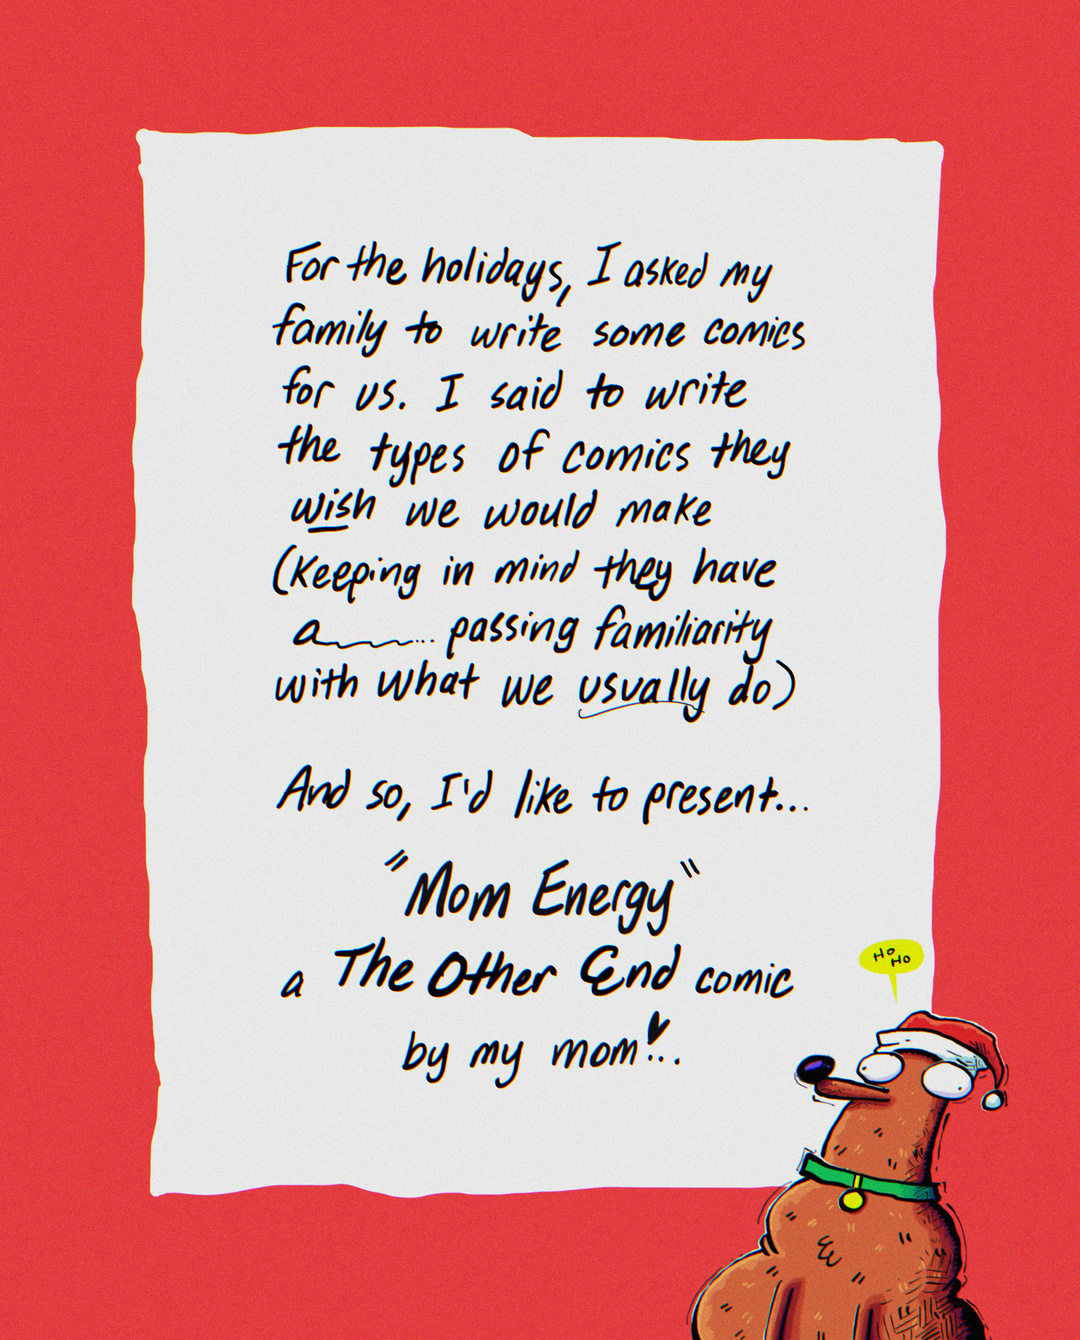 For the holidays, I asked my
family to write some comics
for us. I said to write
the types of comics they
wish we would make
(Keeping in mind they have
a... passing familiarity
with what we usually do)
And so, I'd like to present...
"Mom Energy"
a The Other End comic
by my mom!..
HO HO